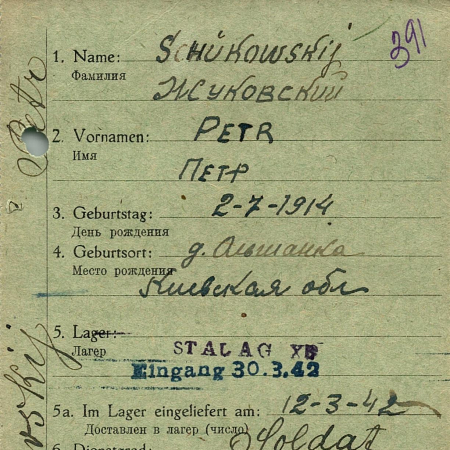 391
1. Name: Schükowskij
Фамилия
Жуковский
2. Vornamen: PETR
Имя
Петр
3. Geburtstag: 2-7-1914
День рождения
4. Geburtsort: д. Ольшанка
Место рождения
Киевская обл
5. Lager:
Лагер
STALAG XB
Eingang 30.3.42
5a. Im Lager eingeliefert am: 12-3-42
Доставлен в лагер (число)
6. Dienstgrad: Soldat
Petr